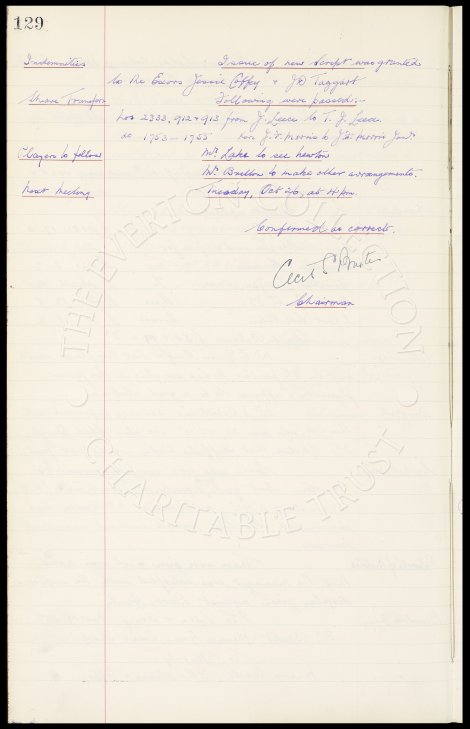 129
Indemnities Issue of new Script was granted
to the Excors Jessie Coffey & J D Taggart
Share Transfers Following were passed:-
Nos 2333, 912 & 913 from J. Leece to T. J. Leece.
do 1953 — 1955 J. F. Morris to J. F. Morris Junr
Players to follow Mr. Lake to see Newton
Mr. Buillon to make other arrangements.
Next Meeting Tuesday, Oct 26, at 4 pm.
Confirmed as correct.
Cecil S Baxter
Chairman
THE EVERTON COLLECTION
CHARITABLE TRUST